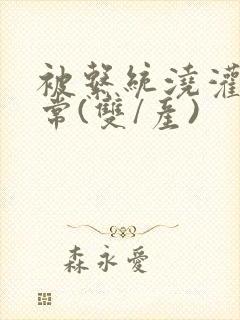 被繫統澆灌
常(雙/產)
森永愛